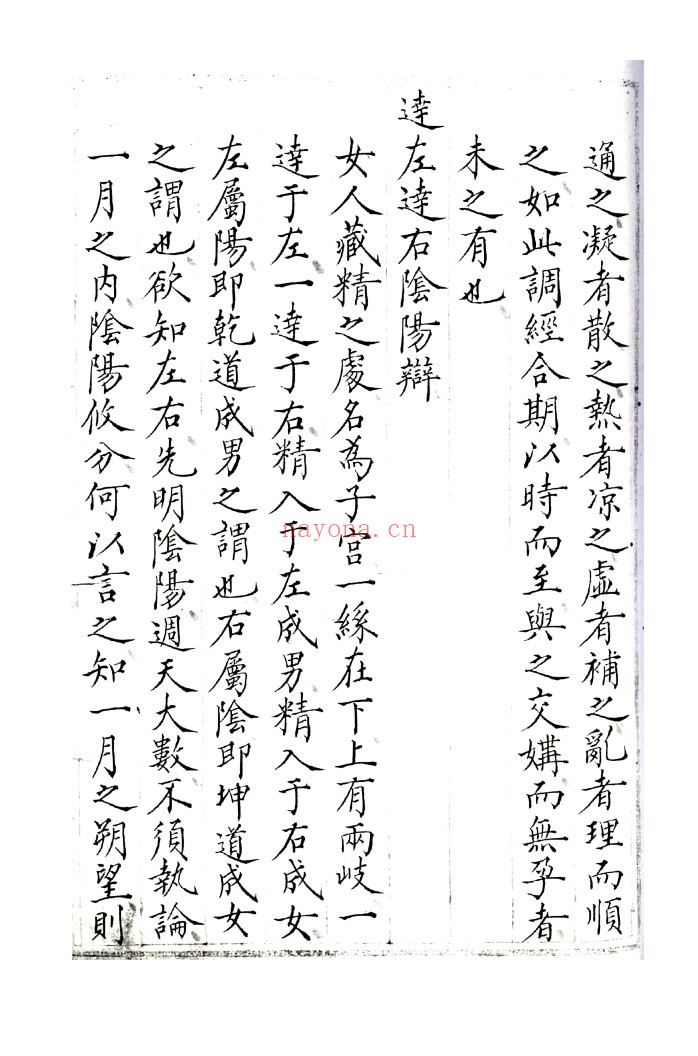 通之凝者散之熱者凉之虛者補之亂者理而順
之如此調經合期以時而至與之交媾而無孕者
未之有也
達左達右陰陽辯
女人藏精之處名為子宮一絲在下上有兩岐一
達于左一達于右精入于左成男精入于右成女
左屬陽即乾道成男之謂也右屬陰即坤道成女
之謂也欲知左右先明陰陽週天大數不須執論
一月之內陰陽攸分何以言之知一月之朔望則
nayona.cn